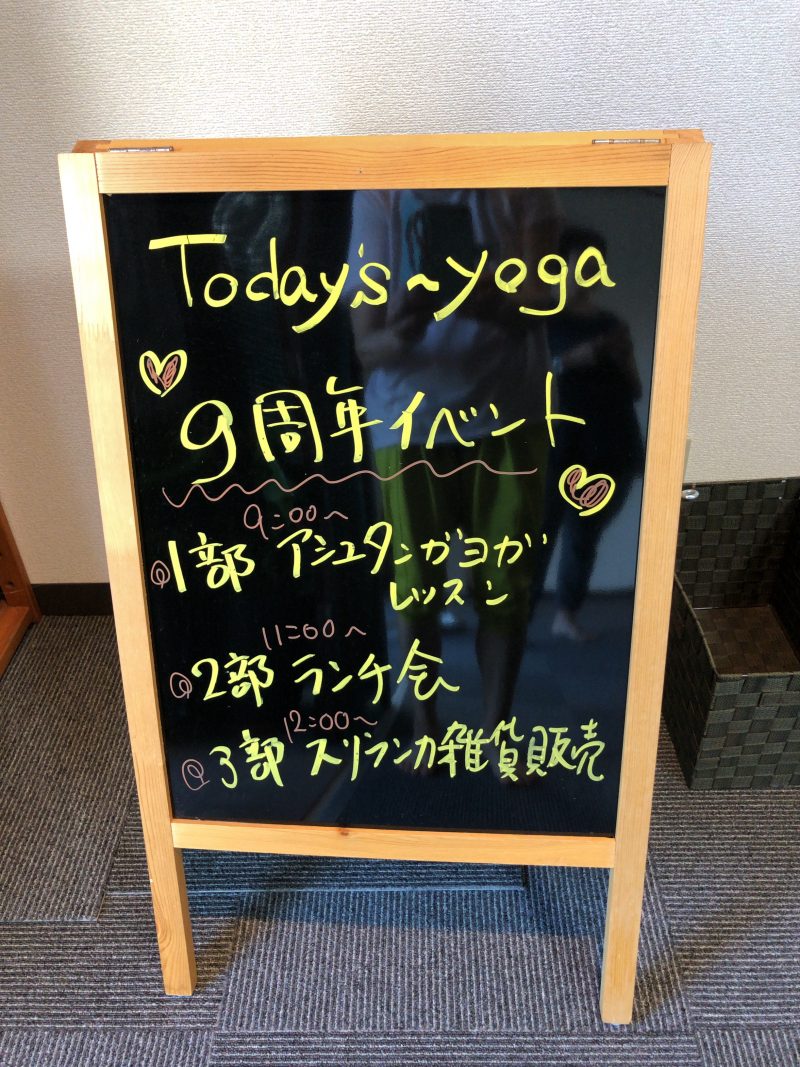 Today's~yoga
9周年イベント
9:00~
1部 アシュタンガヨガ
レッスン
11:00~
2部 ランチ会
12:00~
3部 スリランカ雑貨販売